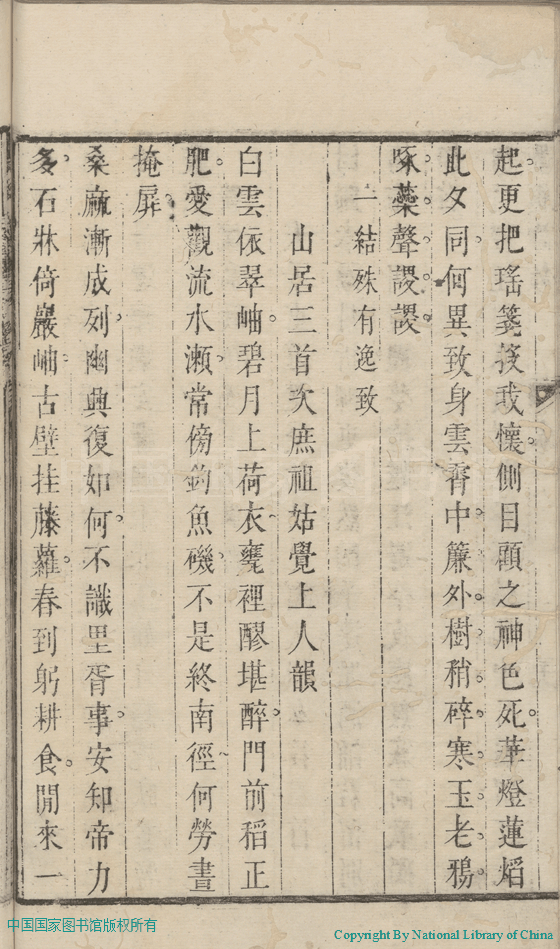 起更把瑤箋發我懷側目顧之神色死華燈蓮焰
此夕同何異致身雲霄中簾外樹稍碎寒玉老鴉
啄藥聲謖謖
一結殊有逸致
山居三首次庶祖姑覺上人韻
白雲依翠岫碧月上荷衣甕裡醪堪醉門前稻正
肥愛觀流水瀬常傍釣魚磯不是終南徑何勞晝
掩扉
桑麻漸成列幽興復如何不識里胥事安知帝力
多石牀倚巖岫古壁挂藤蘿春到躬耕食閒來一
中国国家图书馆版权所有
Copyright By National Library of China